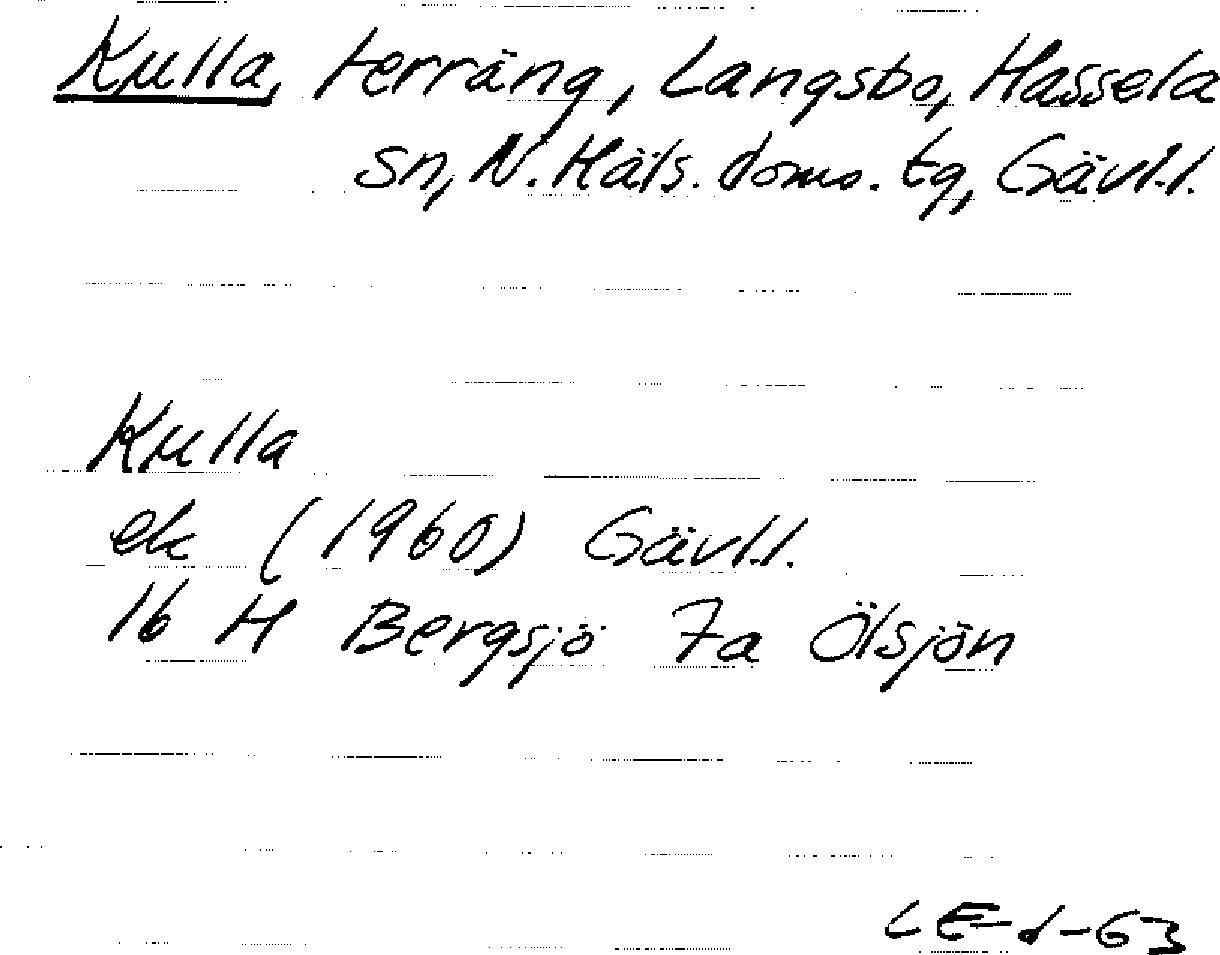 Kulla, terräng, Långsbo, Hassela
sn, N. Häls. doms. tg, Gävl.l.
Kulla
ek (1960) Gävl.l.
16 H Bergsjö 7a Ölsjön
LE-d-63